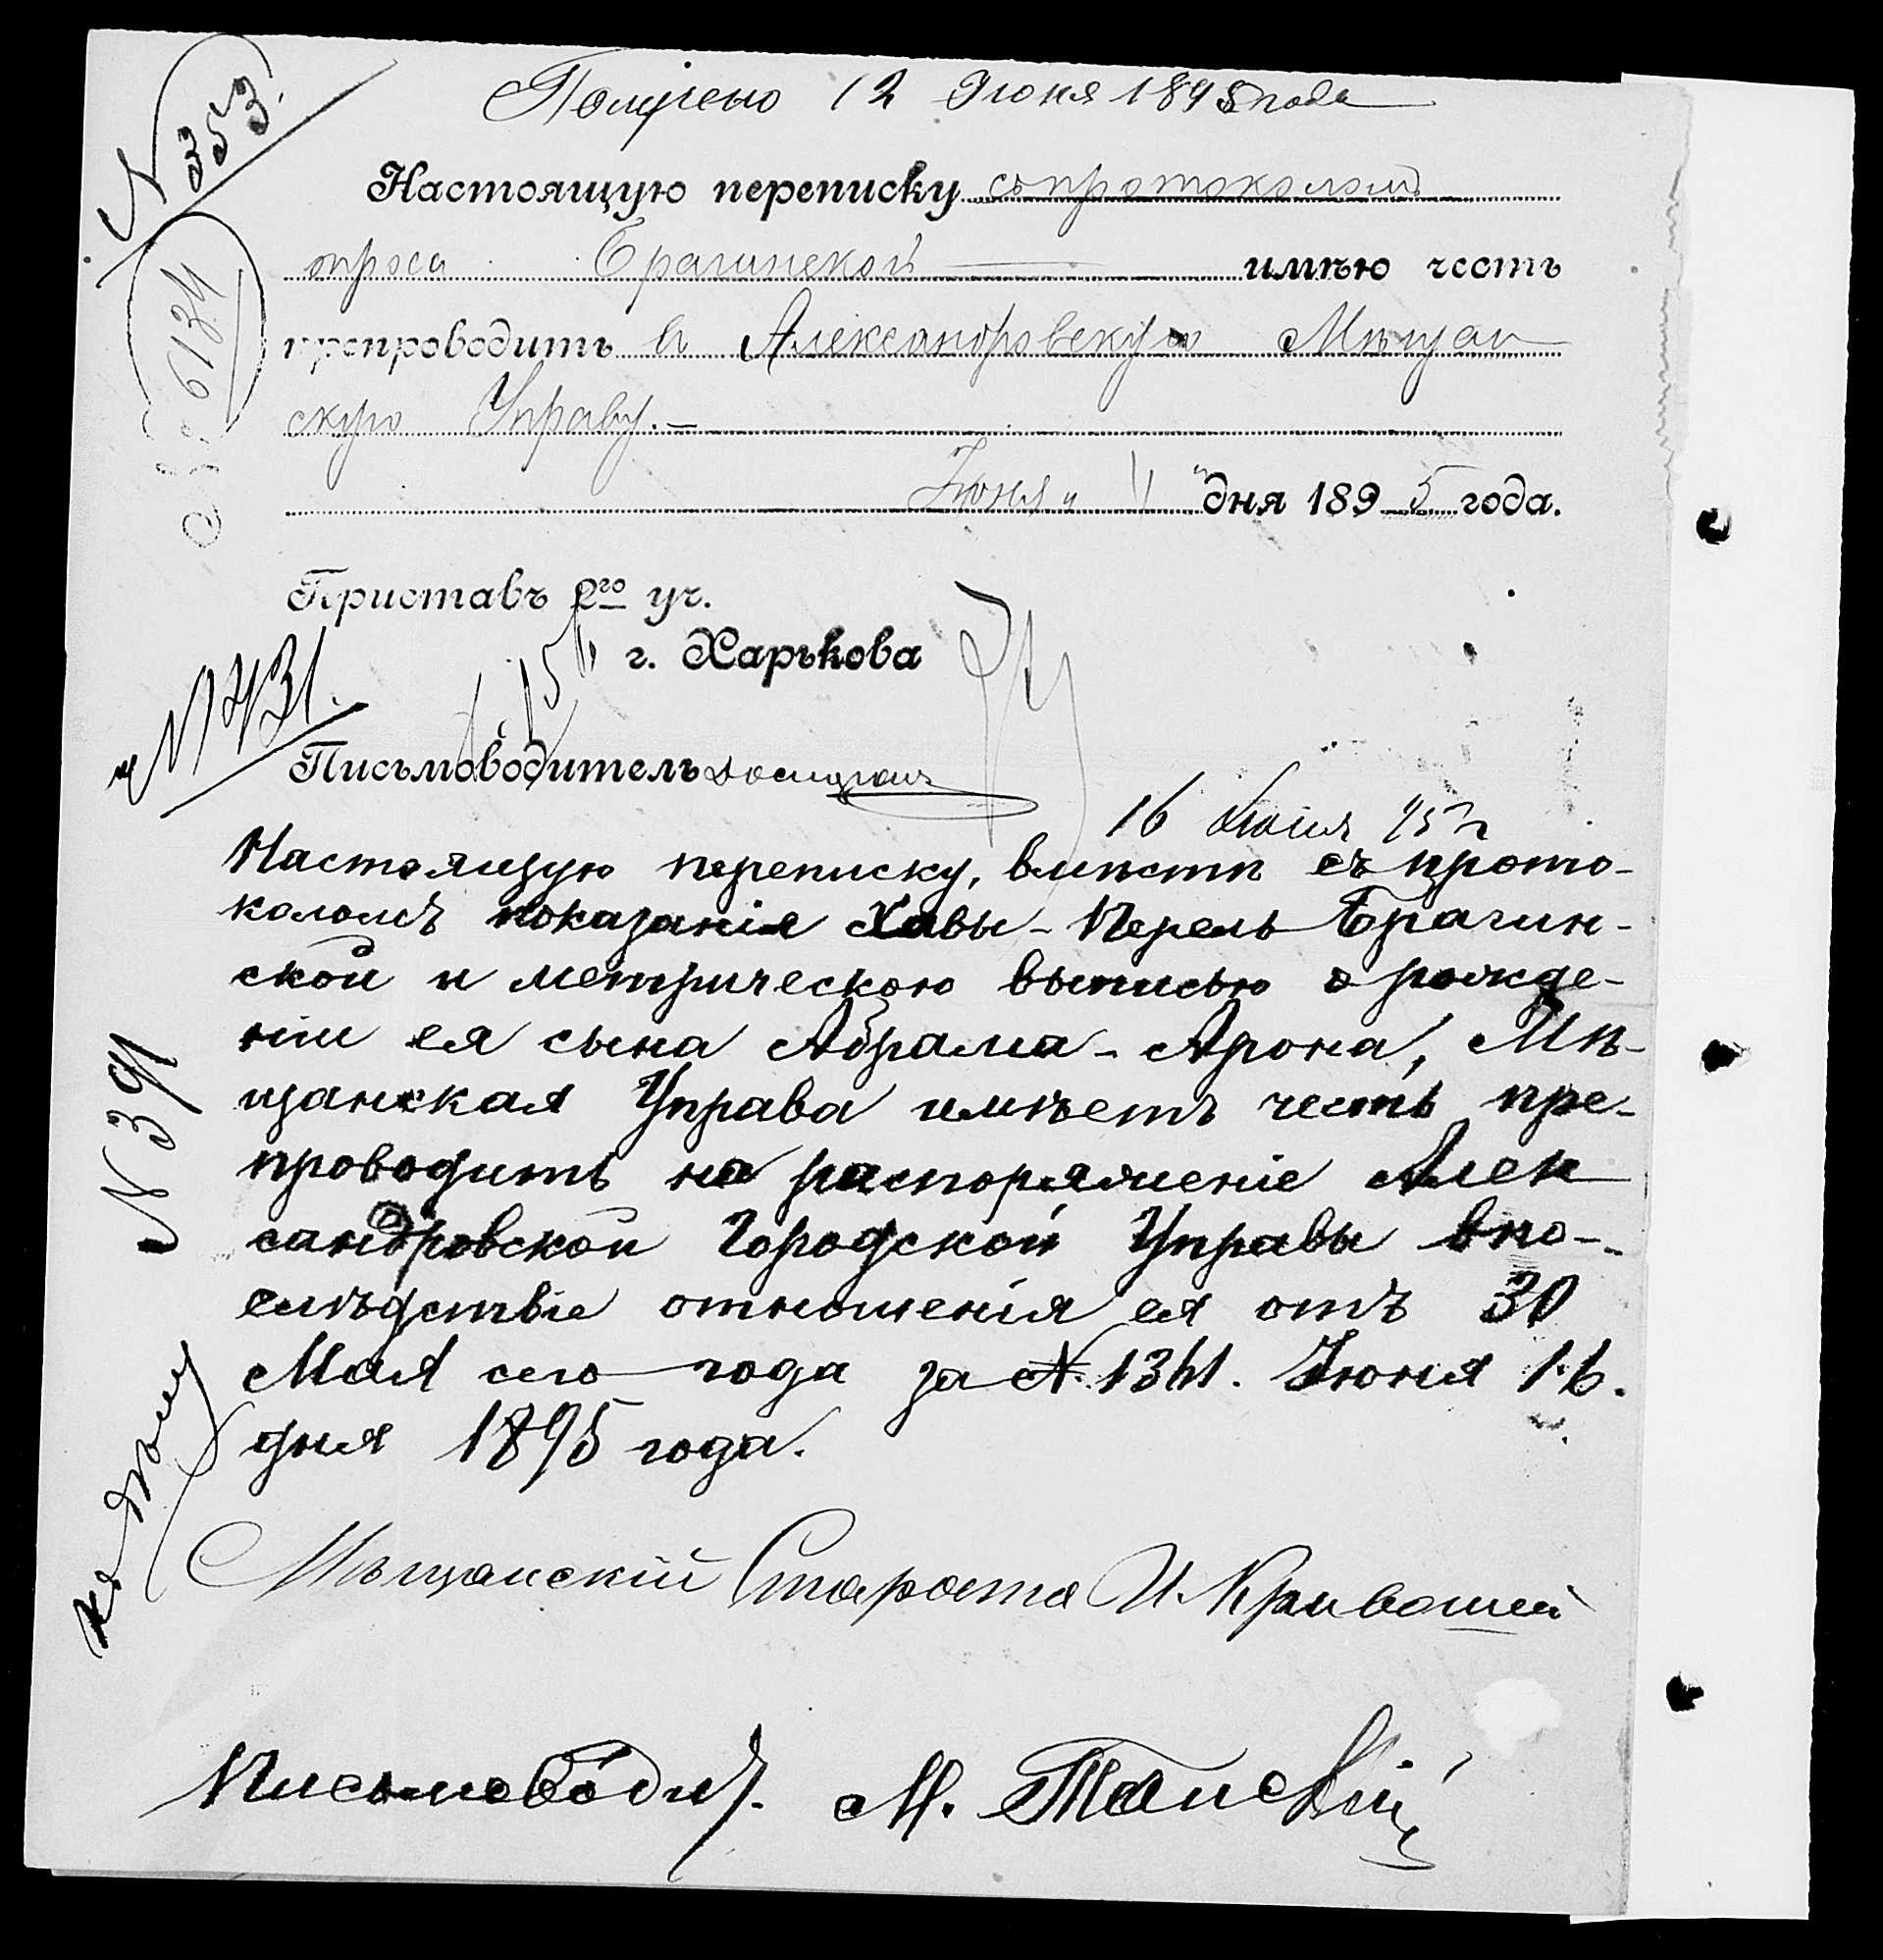 Получено 12 Июня 1895 года
N 353.
Настоящую переписку съ протоколомъ
опроса Брагинской имѣю честь
препроводить въ Александровскую Мѣщан
скую Управу.-
Июня „11" дня 1895 года.
6134
Приставъ 2го уч.
г. Харькова
Письмоводитель
16 Июня 95 г
Настоящую переписку, вмѣстѣ съ прото-
коломъ показанія Хавы-Перель Брагин-
ской и метрическою выписью о рожде-
ніи ея сына Абрама-Арона, Мѣ-
щанская Управа имѣетъ честь пре-
проводить на распоряженіе Алек
сандровской Городской Управы впо-
слѣдствіе отношенія ея отъ 30
Мая сего года за № 1341. Июня 16.
дня 1895 года.
N 391
къ дѣлу
Мѣщанскій Староста И. Кривошей
Письмоводит. М. Танскій